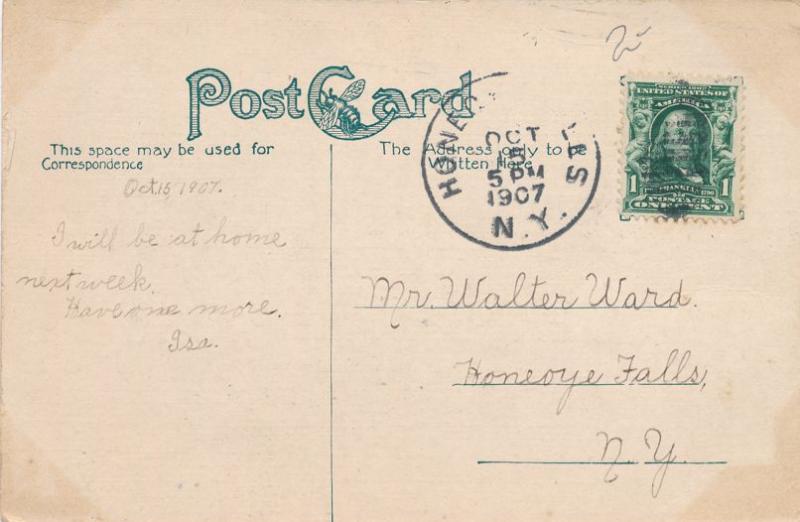 Post Card
This space may be used for
Correspondence
The Address only to be
Written Here
OCT
15
5 PM
1907
N.Y.
SERIES 1902
UNITED STATES OF
AMERICA
1 FRANKLIN 1
POSTAGE
ONE CENT
Oct. 15, 1907.
I will be at home
next week.
Have one more.
Isa.
Mr. Walter Ward.
Honeoye Falls,
N.Y.